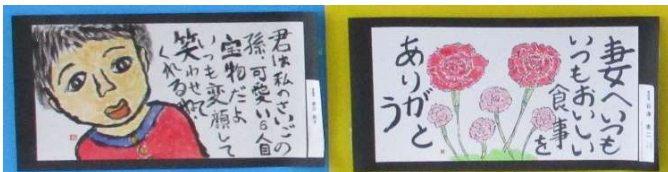 君は私のさいごの
孫、可愛い6人目
宝物だよ
いつも変顔して
笑わせて
くれるね
妻へいつも
いつもおいしい
食事を
ありがと
う